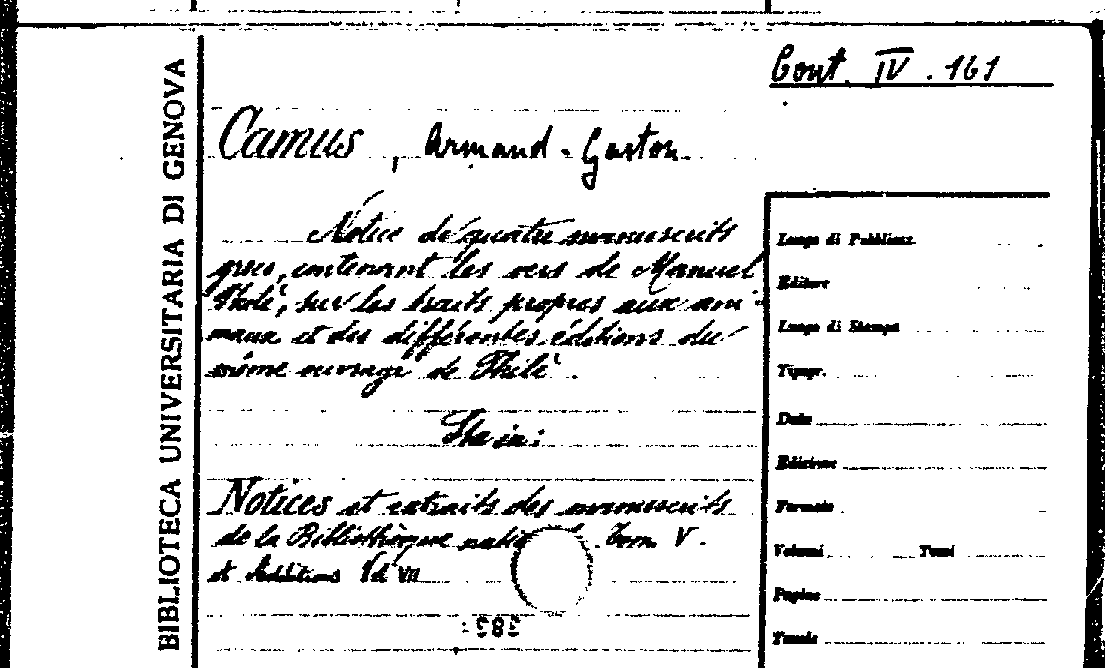 BIBLIOTECA UNIVERSITARIA DI GENOVA
Cont. IV. 161
Camus, Armand-Gaston.
Notice de quatre manuscrits
grecs, contenant les vers de Manuel
Philé, sur les traits propres aux ani-
maux et des différentes éditions du
même ouvrage de Philé.
Sta in:
Notices et extraits des manuscrits
de la Bibliothèque Tom. V.
et Additions VII
Luogo di Pubblicaz.
Editore
Luogo di Stampa
Tipogr.
Data
Edizione
Formato
Volumi Tomi
Pagine
Tavole